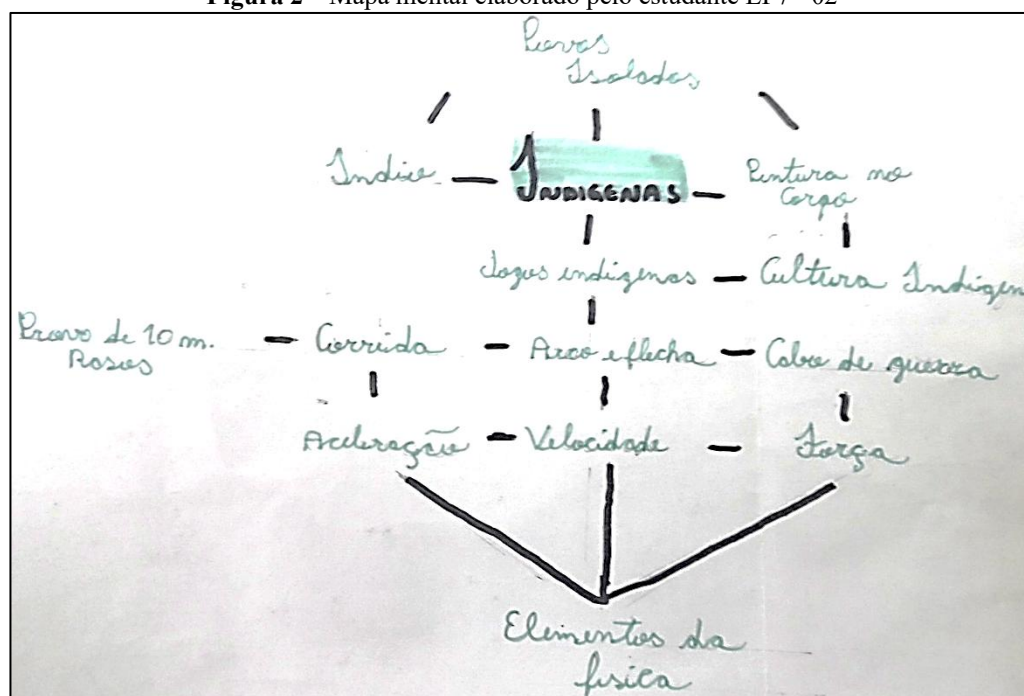 Figura 2 – Mapa mental elaborado pelo estudante EF7 - 02
Povos
Isolados
Índio
INDIGENAS
Pintura no
Corpo
Jogos indigenas
Cultura Indigen
Prova de 10 m.
Rasos
Corrida
Arco e flecha
Cabo de guerra
Aceleração
Velocidade
Força
Elementos da
fisica